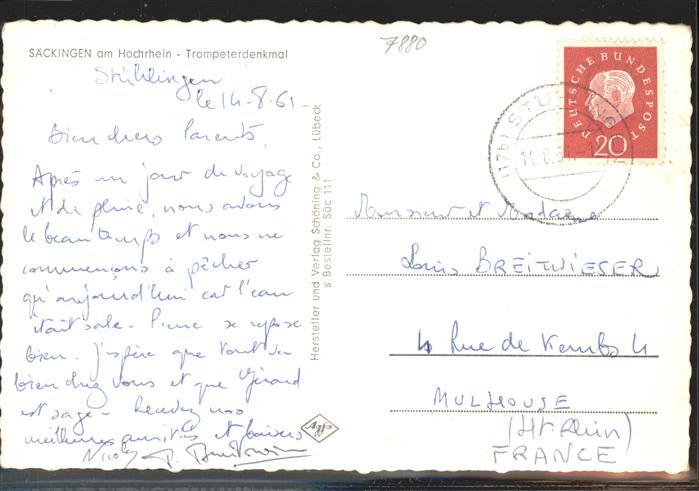 7880
SÄCKINGEN am Hochrhein - Trompeterdenkmal
Stühlingen
le 14-8-61-
Bien chers Parents,
Après un jour de voyage
et de pluie, nous avons
le beau temps et nous ne
commençons à pêcher
qu'aujourd'hui car l'eau
était sale. se repose
bien. J'espère que tout va
bien chez vous et que Gérard
est sage. Recevez nos
meilleures amitiés et baisers
Nicole
Hersteller und Verlag Schöning & Co., Lübeck
s Bestellnr. Säc 111
Agfa
DEUTSCHE BUNDESPOST
20
(17b) STÜHLING
14.8.61
Monsieur et Madame
Louis BREITWIESER
4 Rue de Kembs 4
MULHOUSE
(Ht Rhin)
FRANCE